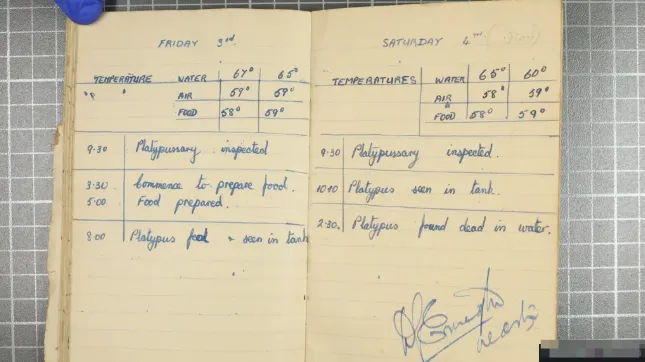 FRIDAY 3rd.
TEMPERATURE WATER 67° 65°
"P " AIR 59° 59°
FOOD 58° 59°
9.30 Platypussary inspected
3.30 Commence to prepare food.
5.00 Food prepared.
8.00 Platypus food & seen in tank
SATURDAY 4th
TEMPERATURES WATER 65° 60°
AIR 58° 59°
FOOD 58° 59°
9.30 Platypussary inspected.
10.10 Platypus seen in tank.
2.30. Platypus found dead in water.